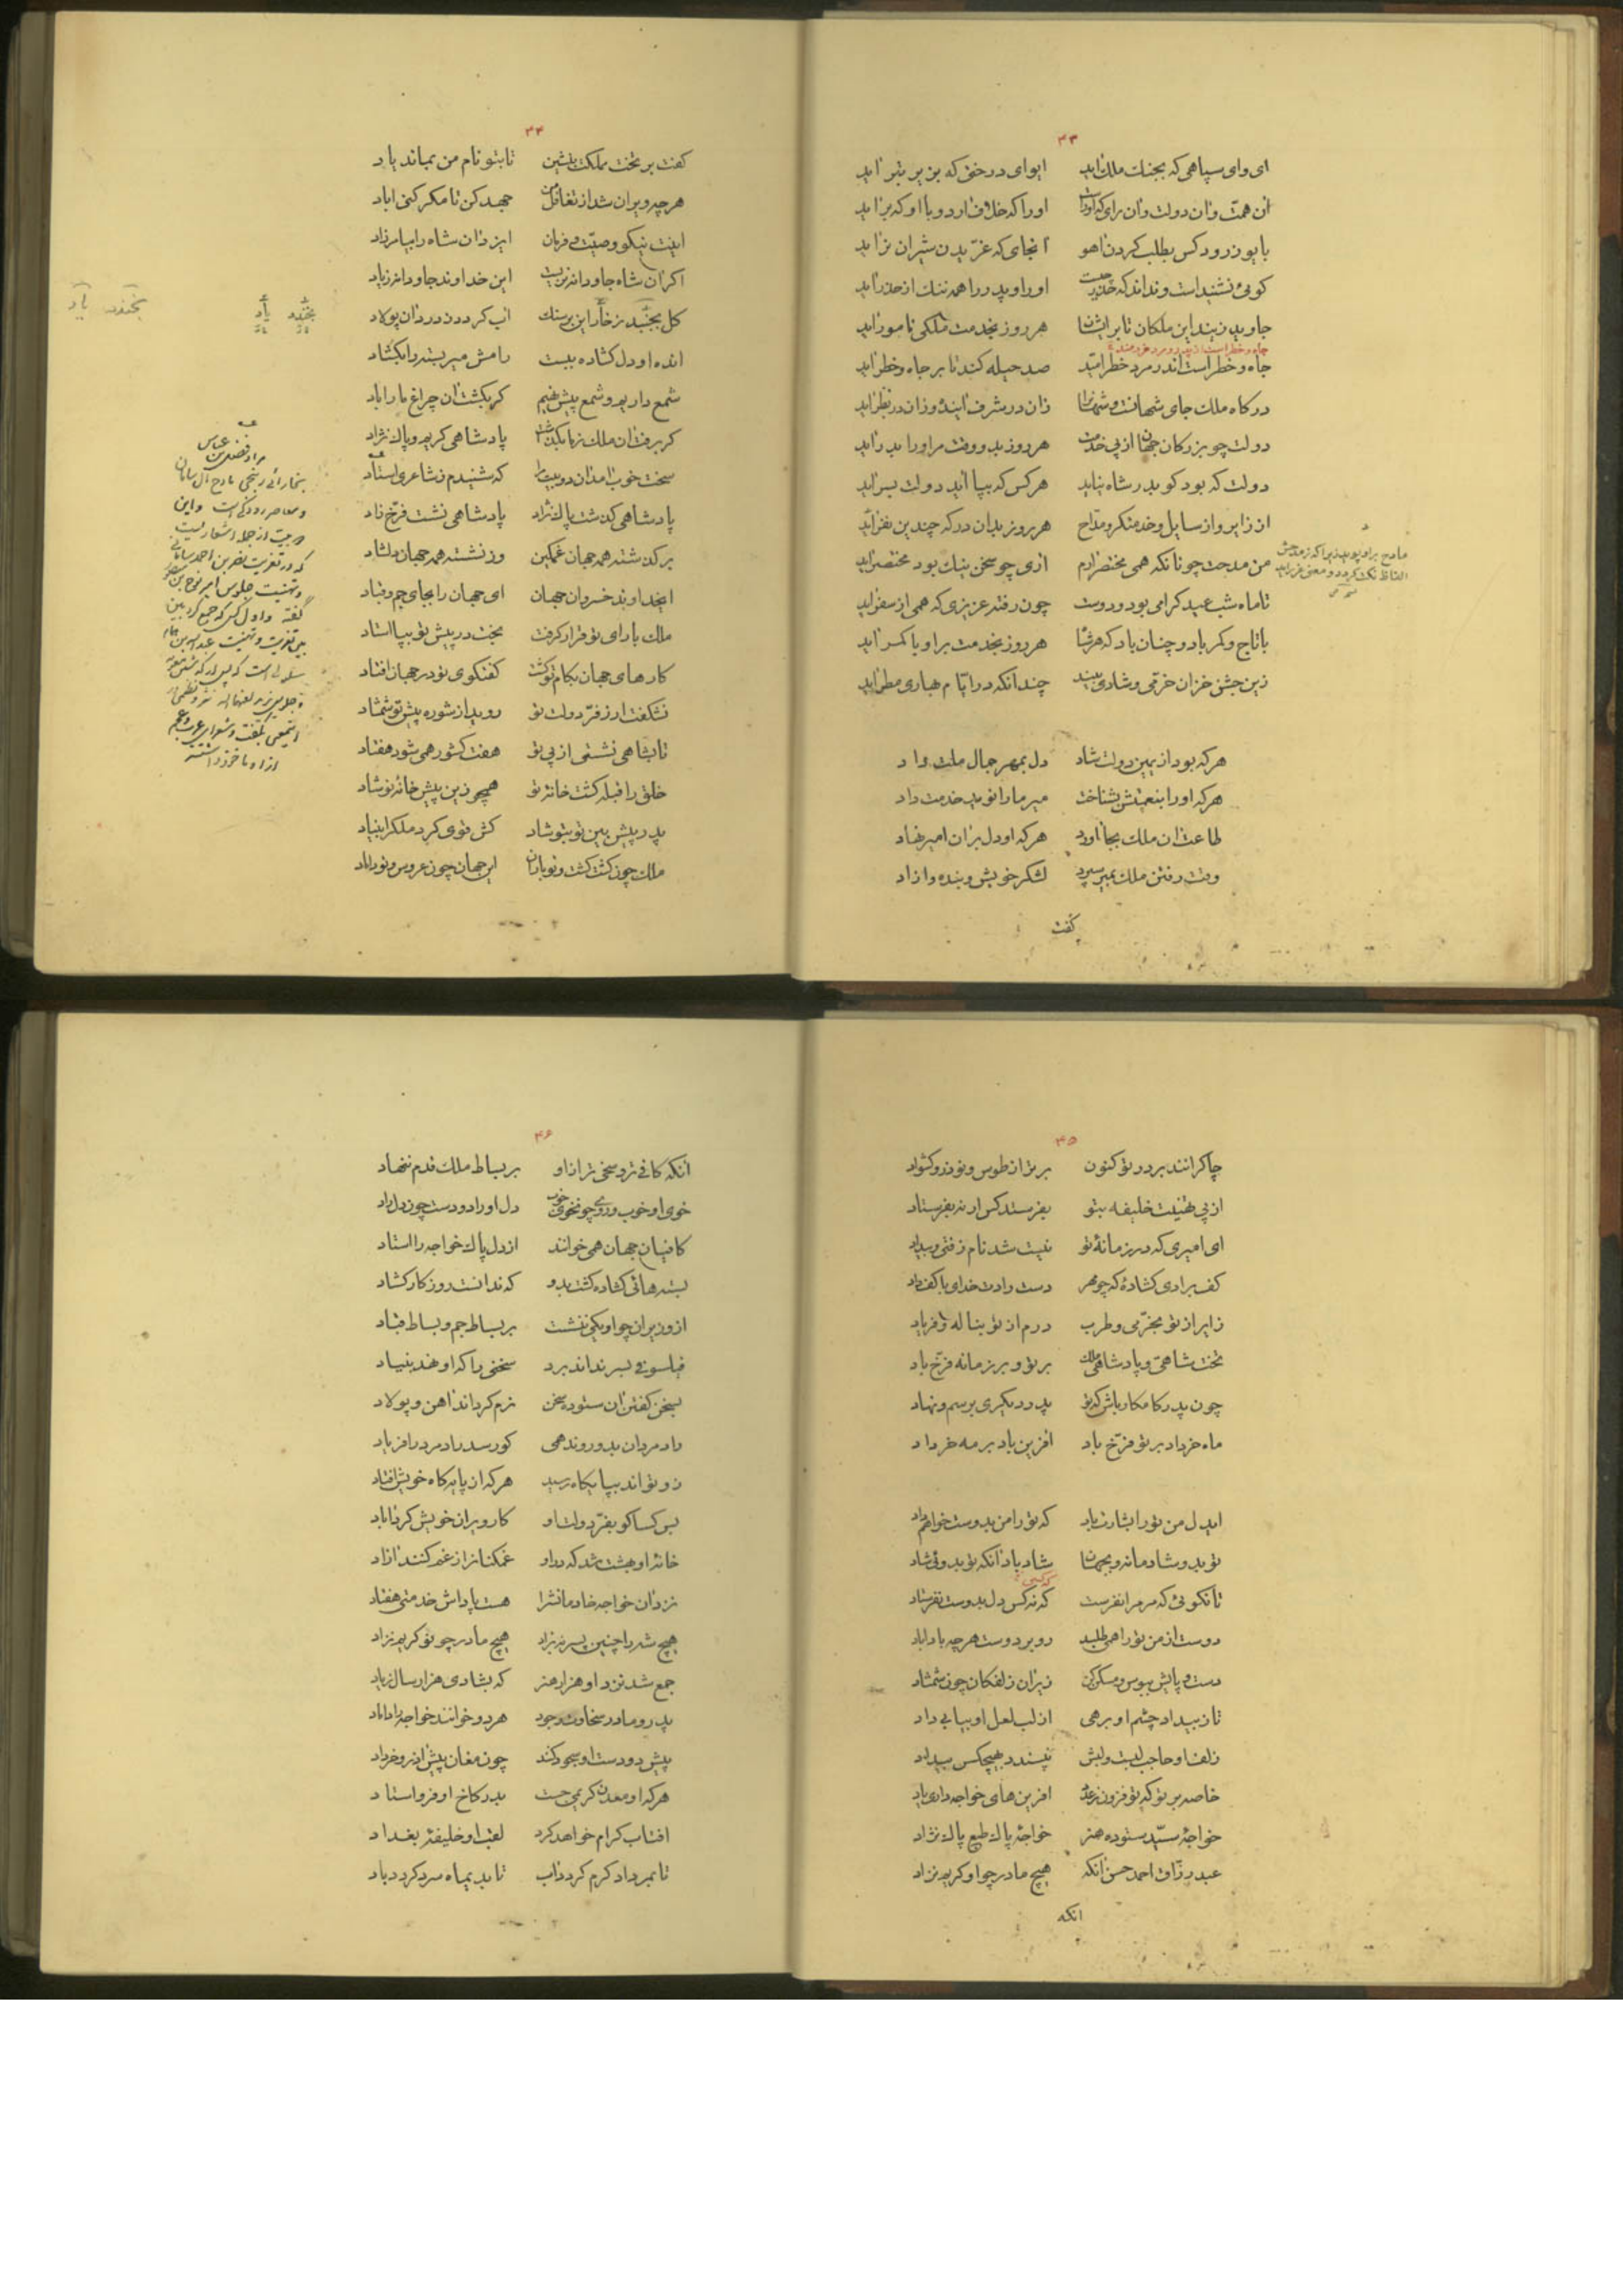 ۴۳
ای وای سپاهی که بجنك ملك آید ایوای درختی که بزیر تبر آید
آن همت وان دولت وان رای که اوراست اورا که خلاف آرد و با او که برآید
با یوز رود کس بطلب کردن آهو آنجای که غریدن شیران نر آید
گوئی نشنیدست و نداند که حذر چیست او را و پدر را همه ننك از حذر آید
جاوید زیند این ملکان تا بر ایشان هر روز بخدمت ملکی نامور آید
جاه و خطر است اندر مرد خطر امید صد حیله کند تا بر جاه و خطر آید
درگاه ملك جای شهانست و شهانرا زان در شرف آیند و زان در نظر آید
دولت چو بزرگان جهان از پی خدمت هر روز بدو وقت مر او را بدر آید
دولت که بود کو بدر شاه نیاید هر کس که بپا آید دولت بسر آید
از زایر و از سایل و خدمتگر و مداح هر روز بدان درگه چندین نفر آید
من مدحت چونانکه همی مختصر آرم آری چو سخن نیك بود مختصر آید
مادح
الفاظ نکت گردد و معنی غرر آید
تا ماه شب عید گرامی بود و دوست چون رفته عزیزی که همی از سفر آید
با تاج و کمر باد و چنان باد که هر شاه هر روز بخدمت بر او با کمر آید
زین جشن خزان خرمی و شادی بیند چندانکه در ایام بهاری مطر آید
هر که بود از یمین دولت شاد دل بمهر جمال ملت داد
هر که او را بنعمتش بشناخت میر ما را نوید خدمت داد
طاعت آن ملك بجا آورد هر که او دل بر آن امیر نهاد
وقت رفتن ملك بمیر سپرد لشکر خویش و بنده و آزاد
گفت
۴۴
گفت بر تخت مملکت بنشین تا بتو نام من بماند یاد
هر چه ویران شد از تغافل من جهد کن تا مگر کنی آباد
اینت نیکو وصیت و فرمان ایزد آن شاه را بیامرزاد
اگر آن شاه جاودانه نزیست این خداوند جاودانه زیاد
گل بخندد ز خار این بر سنك آب گردد ز درد آن پولاد
انده او دل گشاده ببست رامش میر بسته را بگشاد
شمع داریم و شمع پیش نهیم گر بکشت آن چراغ ما را باد
گر برفت آن ملك بما بگذاشت پادشاهی کریم و پاك نژاد
سخت خوب آمد آن دو بیت مرا که شنیدم ز شاعری استاد
پادشاهی گذشت پاك نژاد پادشاهی نشست فرخ زاد
بر گذشته همه جهان غمگین وز نشسته همه جهان دلشاد
ایخداوند خسروان جهان ای جهان را بجای جم و قباد
ملك با رای تو قرار گرفت بخت در پیش تو بپا استاد
کارهای جهان بکام تو گشت گفتگوی تو در جهان افتاد
نشگفت ار ز فر دولت تو روید از شوره پیش تو شمشاد
تا بشاهی نشستی از پی تو هفت کشور همی شود هفتاد
خلق را قبله گشت خانه تو همچو زین پیش خانه نوشاد
پدر پیش بین تو بتو شاد کش قوی کرد ملك را بنیاد
ملك چون کشت گشت و تو باران این جهان چون عروس و تو داماد
بخندد یاد
مراد فضل بن عباس
۴۵
چاکرانند بر در تو کنون برتر از طوس و نوذر و کشواد
از پی تهنیت خلیفه بتو بفرستد کس ار نه بفرستاد
ای امیری که در زمانه تو نیست شد نام زفتی و بیداد
کف برادی گشاده که چو مهر دست دادت خدای با کف راد
زایر از تو بخرمی و طرب درم از تو بناله و فریاد
تخت شاهی و پادشاهی ملك بر تو و بر زمانه فرخ باد
چون پدر کامکار باش که تو پدر دیگری برسم و نهاد
ماه خرداد بر تو فرخ باد آفرین باد بر مه خرداد
ایدل من تو را بشارت باد که تو را من بدوست خواهم داد
تو بدو شادمانه و بجهان شاد باد آنکه تو بدوئی شاد
تا نگوئی که مر مرا مفرست که نه کس دل بدوست نفرستاد
دوست از من تو را همی طلبد رو بر دوست هر چه باداباد
دست و پایش ببوس و مسکن کن زیر آن زلفکان چون شمشاد
تا ز بیداد چشم او برهی از لب لعل او بیابی داد
زلف او حاجب لبست و لبش نپسندد بهیچکس بیداد
خاصه بر تو که تو فزون ز عدد آفرین های خواجه داری یاد
خواجه سید ستوده هنر خواجه پاك طبع پاك نژاد
عبد رزاق احمد حسن آنکه هیچ مادر چو او کریم نزاد
آنکه
۴۶
آنکه کافی تر و سخی تر از او بر بساط ملك قدم ننهاد
خوی او خوب و روی چون خوی خوب دل او راد و دست چون دل راد
کافیان جهان همی خوانند از دل پاك خواجه را استاد
بسته هائی گشاده گشت بدو که ندانست روزگار گشاد
از وزیران چو او یکی ننشست بر بساط جم و بساط قباد
فیلسوفی بسر نداند برد سخنی را که او نهد بنیاد
بسخن گفتن آن ستوده سخن نرم گرداند آهن و پولاد
داد مردان بدو روند همی کو رسد راد مرد را فریاد
زو تواند بپایگاه رسید هر که از پایگاه خویش افتاد
بس کسا کو بفر دولت او کار ویران خویش کرد آباد
خانه او بهشت شد که در او غمگنان را ز غم کنند آزاد
نزد آن خواجه خادمانش را هست پاداش خدمتی هفتاد
هیچ شه را چنین پسر نه نزاد هیچ مادر چو تو کریم نزاد
جمع شد نزد او هزار هنر که بشادی هزار سال زیاد
پدر و مادر سخاوت و جود هر دو خوانند خواجه را داماد
پیش دو دست او سجود کند چون مغان پیش آذر خرداد
هر که او معدن کریمی جست بدر کاخ او فرو استاد
آفتاب کرام خواهد کرد لقب او خلیفه بغداد
تا بمرداد گرم گردد آب تا بدیماه سرد گردد باد